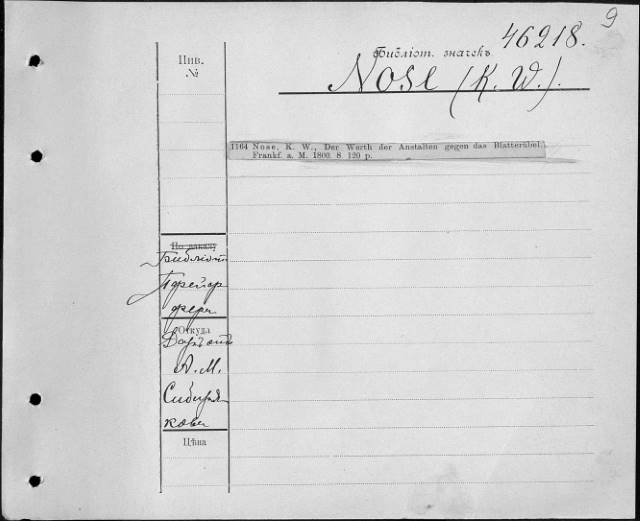 9
46218.
Библіот. значекъ
Nose (K. W.).
Инв.
№
1164 Nose, K. W., Der Werth der Anstalten gegen das Blatterübel.
Frankf. a. M. 1800. 8 120 p.
По заказу
Библіот
Пфейф
фера
Откуда
Даръ отъ
А. М.
Сибиря
кова
Цѣна